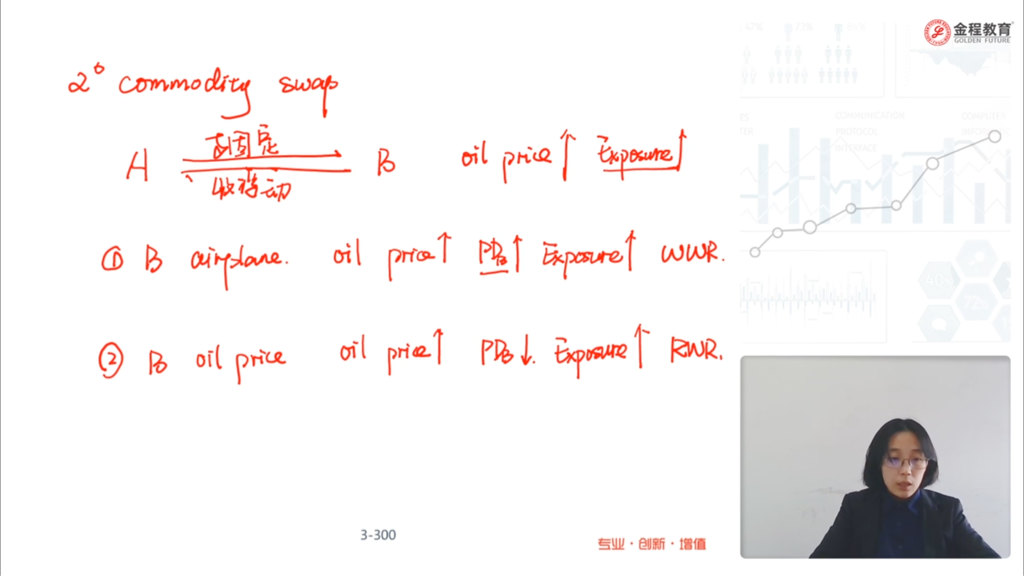 金程教育
GOLDEN FUTURE
2° commodity swap
支固定
A B oil price ↑ Exposure ↑
收浮动
① B airplane. oil price ↑ PDB ↑ Exposure ↑ WWR.
② B oil price oil price ↑ PDB ↓. Exposure ↑ RWR.
3-300
专业·创新·增值